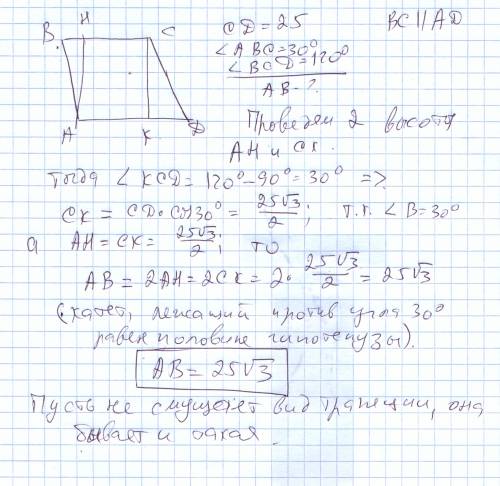 H
B
C
A
K
D
CD = 25
BC || AD
∠ABC=30°
∠BCD=120°
AB - ?
Проведем 2 высоты
AH и CK.
Тогда ∠KCD = 120° - 90° = 30° =>
CK = CD · cos30° = 25√3/2; т.к. ∠B=30°
а AH = CK = 25√3/2; то
AB = 2AH = 2CK = 2 · 25√3/2 = 25√3
(катет, лежащий против угла 30°
равен половине гипотенузы).
AB = 25√3
Пусть не смущает вид трапеции, она
бывает и такая.